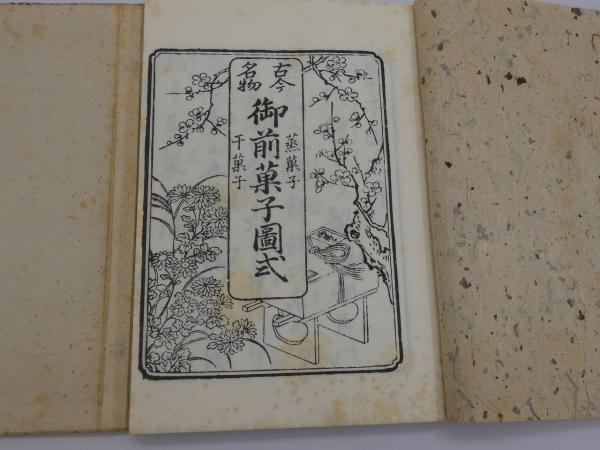 古今
名物
御前菓子圖式
蒸菓子
干菓子